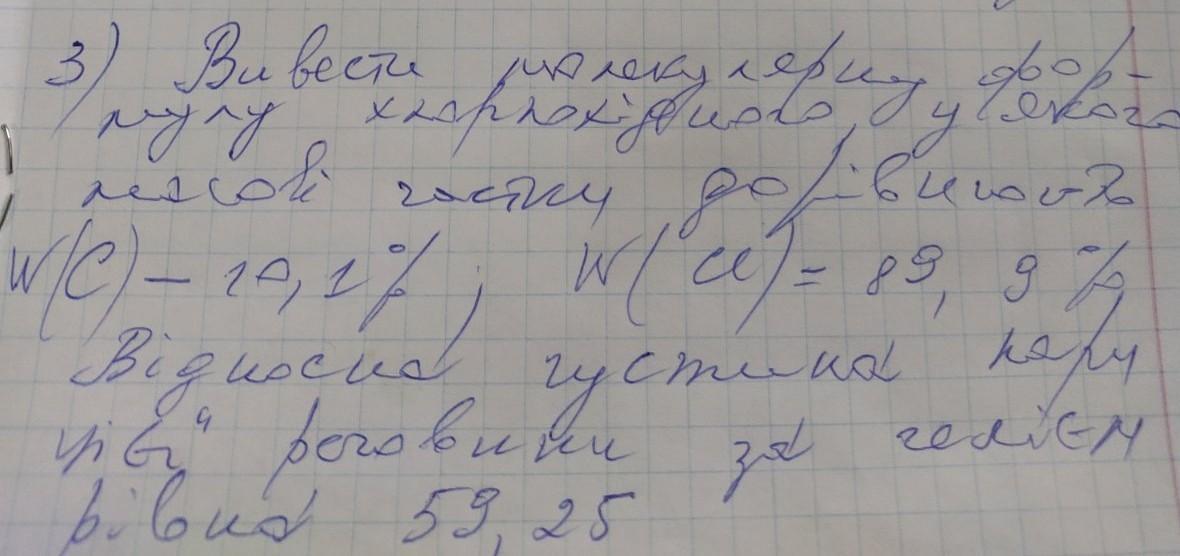 3) Вивести молекулярну фор-
мулу хлорпохідного, у якого
масові частки дорівнюють
W(C) – 10,1%; W(Cl) = 89,9%
Відносна густина пари
цієї речовини за гелієм
рівна 59,25